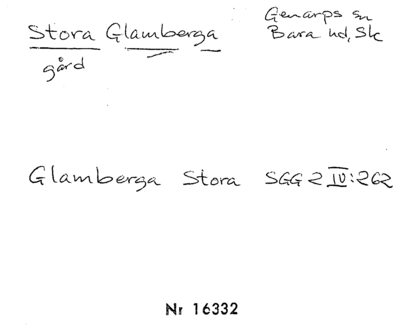 Stora Glamberga
gård
Genarps sn
Bara hd, Sk
Glamberga Stora SGG 2 IV:262
Nr 16332